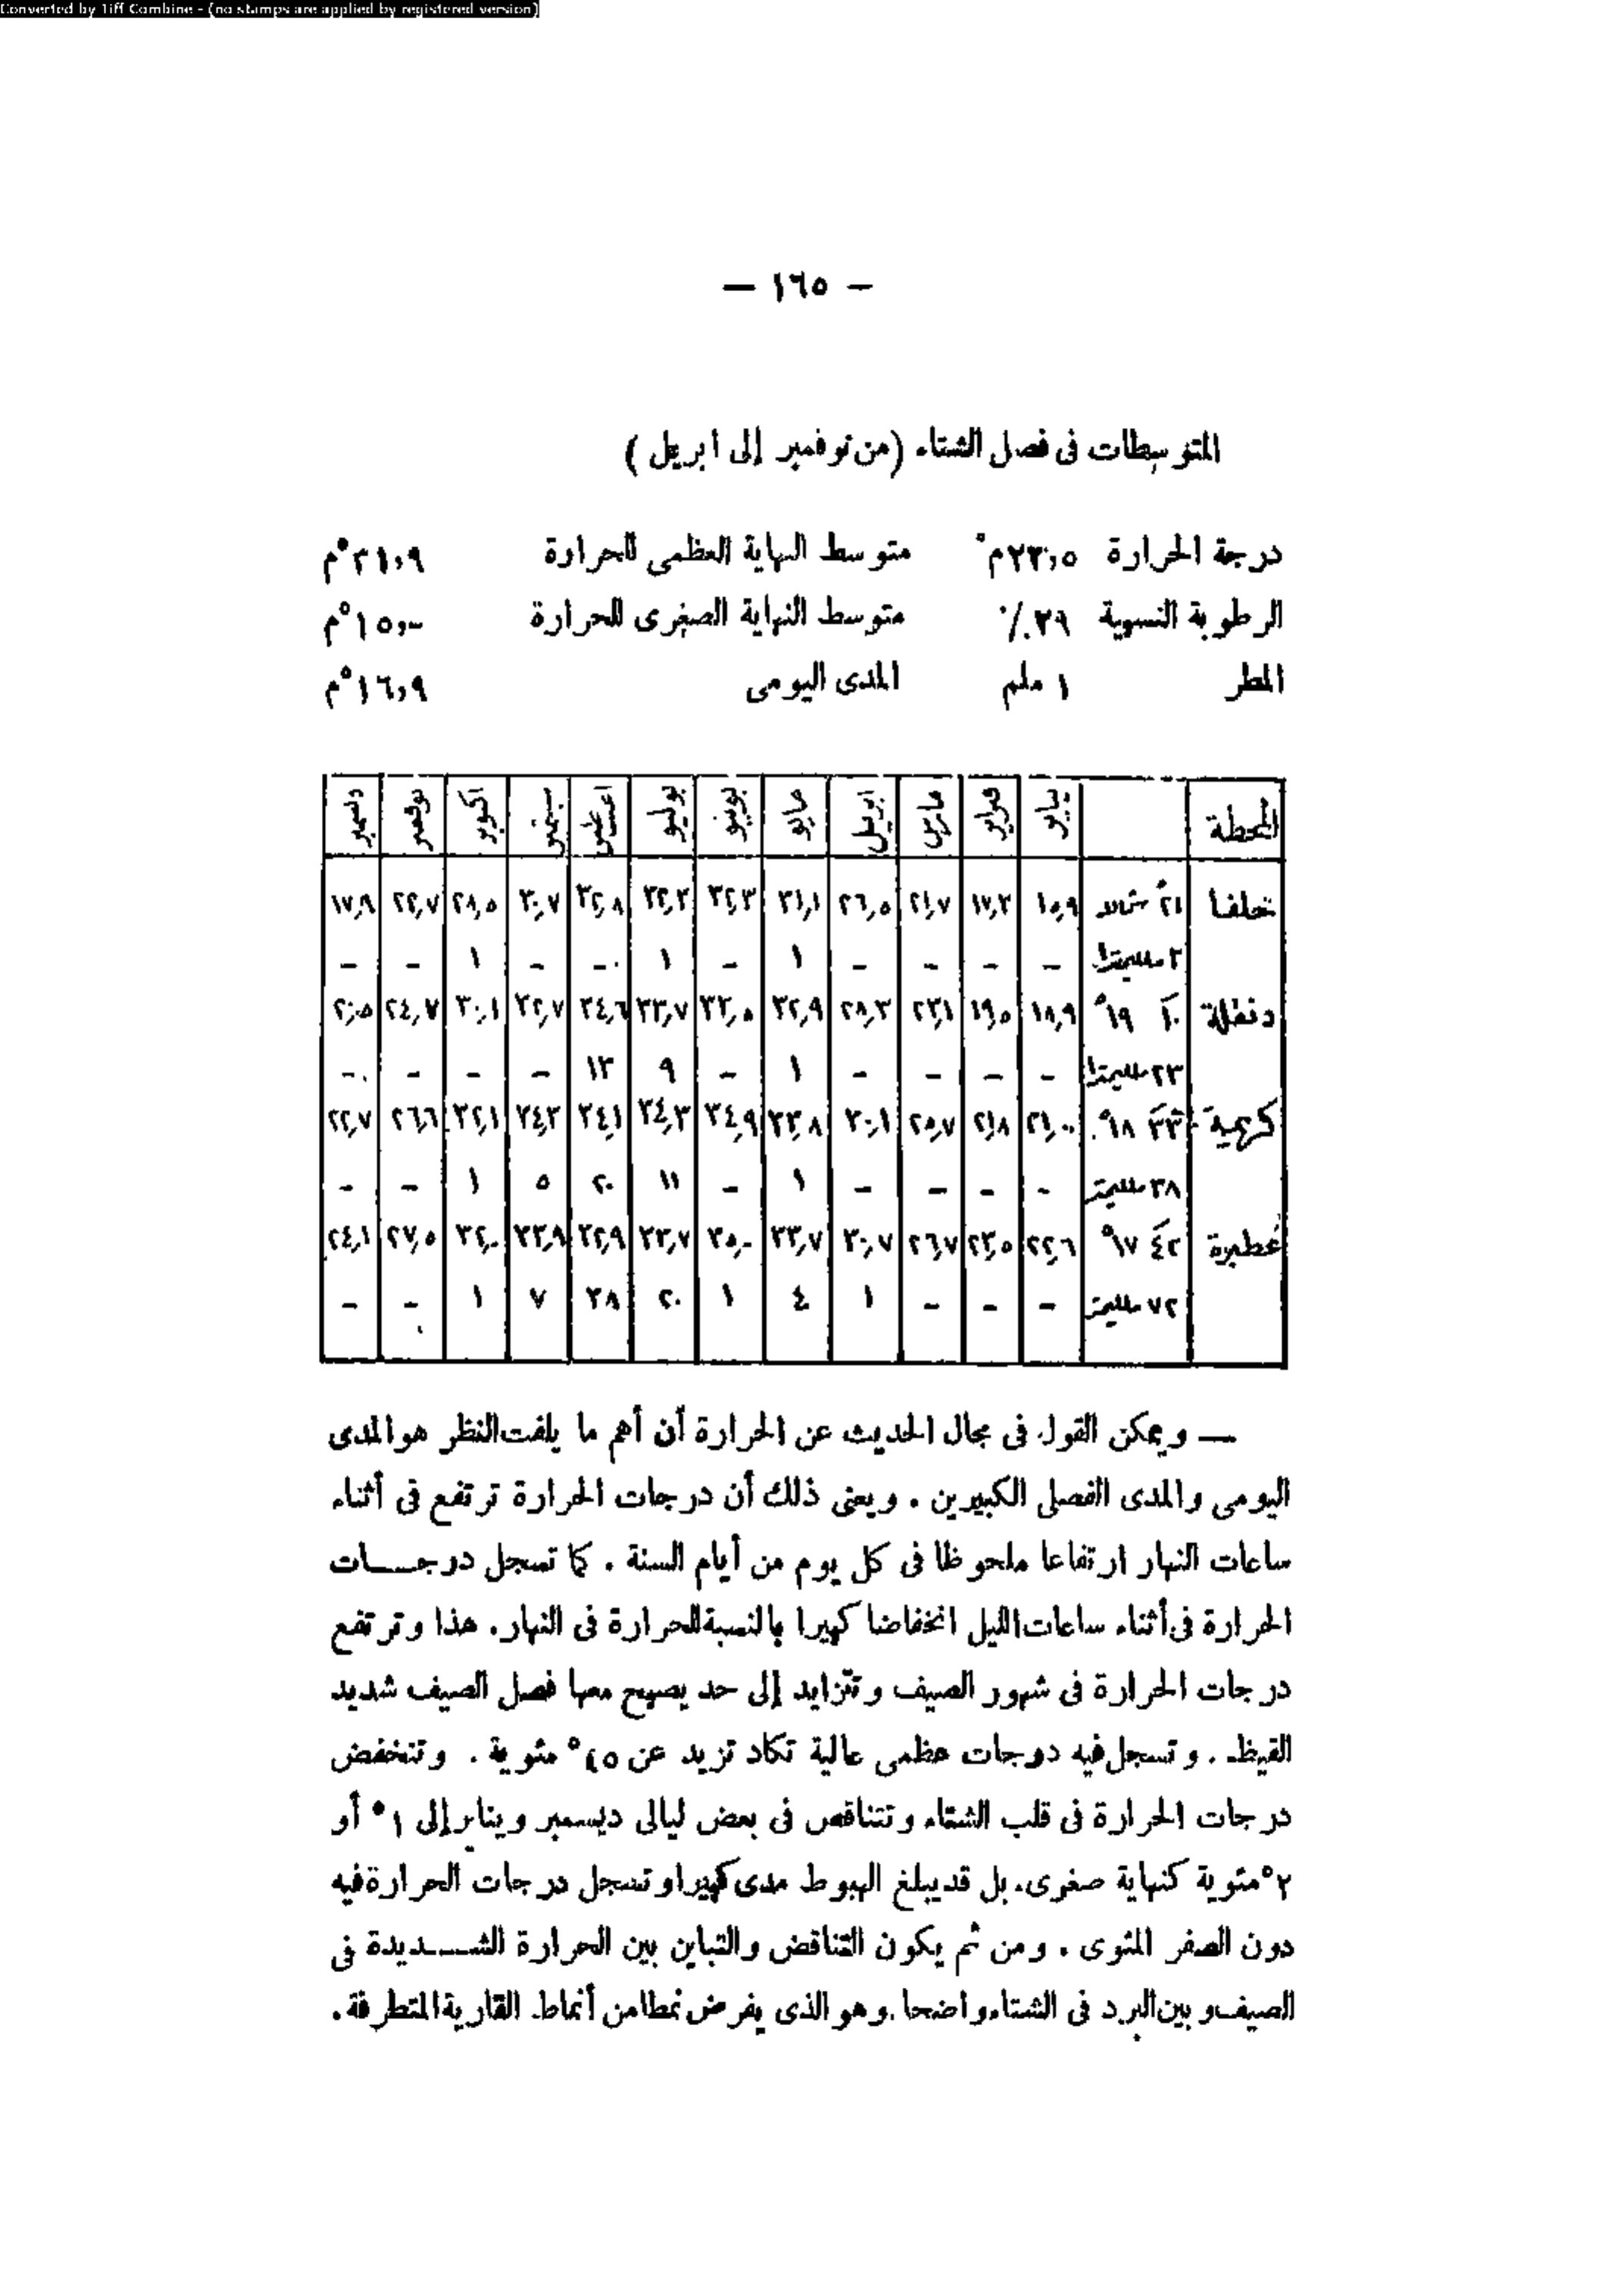 Converted by Tiff Combine - (no stamps are applied by registered version)
— ١٦٥ —
المتوسطات فى فصل الشتاء (من نوفمبر إلى ابريل)
درجة الحرارة ٢٣,٥م° متوسط النهاية العظمى للحرارة ٣١,٩°م
الرطوبة النسبية ٢٩٪ متوسط النهاية الصغرى للحرارة ١٥,٠°م
المطر ١ ملم المدى اليومى ١٦,٩°م
المحطة يناير فبراير مارس ابريل مايو يونيو يوليو اغسطس سبتمبر اكتوبر نوفمبر ديسمبر
حلفا ١٥,٩ ١٧,٣ ٢١,٧ ٢٦,٥ ٣١,١ ٣٢,٣ ٣٢,٣ ٣٢,٨ ٣٠,٧ ٢٨,٥ ٢٢,٧ ١٧,٩
– – – – ١ – ١ – – ١ – –
دنقلة ١٨,٩ ١٩,٥ ٢٣,١ ٢٨,٣ ٣٢,٩ ٣٣,٧ ٣٤,٦ ٣٠,١ ٢٤,٧ ٢٠,٥
٢٣ ملليمترا – – – – ١ – ٩ ١٣ – – – –
كريمة ٢١,٠ ٢١,٨ ٢٥,٧ ٣٠,١ ٣٣,٨ ٣٤,٩ ٣٤,٣ ٣٤,١ ٣٤,٣ ٣٢,١ ٢٦,٦ ٢٢,٧
٣٨ ملليمتر – – – – ١ – ١١ ٢٠ ٥ ١ – –
عطبرة ٢٢,٦ ٢٣,٥ ٢٦,٧ ٣٠,٧ ٣٣,٧ ٣٥,٠ ٣٣,٧ ٣٢,٩ ٣٣,٩ ٣٢,٠ ٢٧,٥ ٢٤,١
٧٢ ملليمتر – – – ١ ٤ ١ ٢٠ ٣٨ ٧ ١ – –
— ويمكن القول فى مجال الحديث عن الحرارة أن أهم ما يلفت النظر هو المدى
اليومى والمدى الفصلى الكبيرين . ويعنى ذلك أن درجات الحرارة ترتفع فى أثناء
ساعات النهار ارتفاعا ملحوظا فى كل يوم من أيام السنة . كما تسجل درجـــات
الحرارة فى أثناء ساعات الليل انخفاضا كبيرا بالنسبة للحرارة فى النهار. هذا وترتفع
درجات الحرارة فى شهور الصيف وتتزايد إلى حد يصبح معها فصل الصيف شديد
القيظ . وتسجل فيه درجات عظمى عالية تكاد تزيد عن ٤٥° مئوية . وتنخفض
درجات الحرارة فى قلب الشتاء وتتناقص فى بعض ليالى ديسمبر ويناير إلى ١° أو
٢° مئوية كنهاية صغرى. بل قد يبلغ الهبوط مدى كبيرا وتسجل درجات الحرارة فيه
دون الصفر المئوى . ومن ثم يكون التناقض والتباين بين الحرارة الشـــديدة فى
الصيف وبين البرد فى الشتاء واضحا. وهو الذى يفرض نمطا من أنماط القارية المتطرفة .